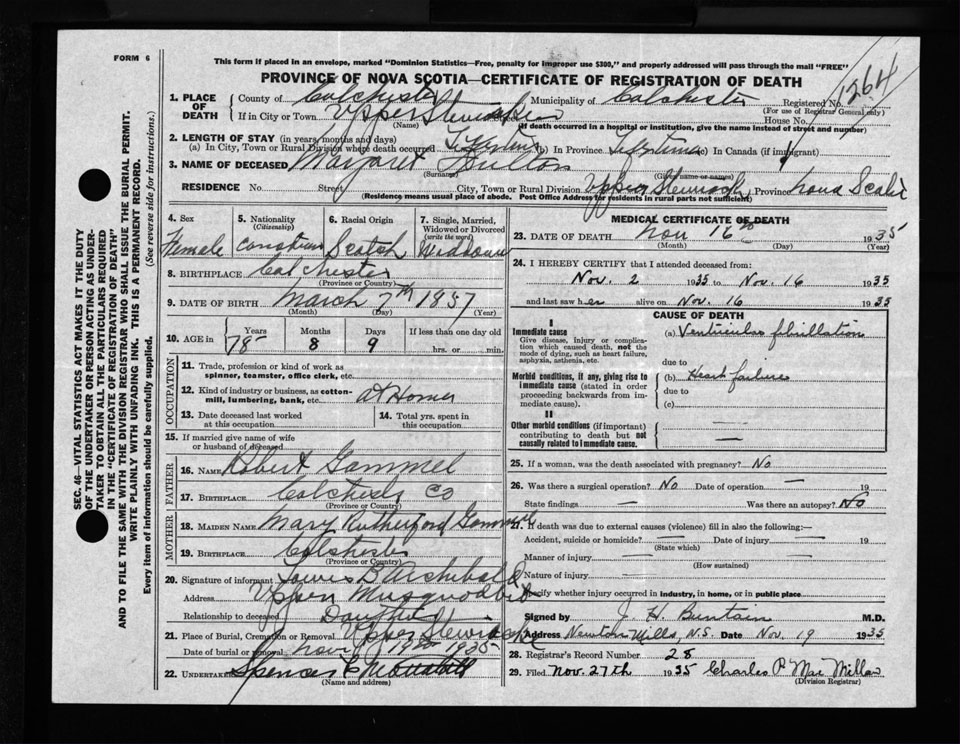 FORM 6
This form if placed in an envelope, marked "Dominion Statistics—Free, penalty for improper use $300," and properly addressed will pass through the mail "FREE"
PROVINCE OF NOVA SCOTIA—CERTIFICATE OF REGISTRATION OF DEATH
1264
1. PLACE OF DEATH County of Colchester Municipality of Colchester Registered No.
(For use of Registrar General only)
If in City or Town Upper Stewiacke Street House No.
(Name) (If death occurred in a hospital or institution, give the name instead of street and number)
2. LENGTH OF STAY (in years months and days)
(a) In City, Town or Rural Division where death occurred Lifetime (b) In Province Lifetime (c) In Canada (if immigrant)
3. NAME OF DECEASED Margaret Dulton
(Surname) (Given name or names)
RESIDENCE No. Street City, Town or Rural Division Upper Stewiacke Province Nova Scotia
(Residence means usual place of abode. Post Office Address for residents in rural parts not sufficient)
4. Sex Female
5. Nationality (Citizenship)
6. Racial Origin Scotch
7. Single, Married, Widowed or Divorced (write the word) Widdow
8. BIRTHPLACE Colchester
(Province or Country)
9. DATE OF BIRTH March 7th 1857
(Month) (Day) (Year)
10. AGE in Years 78 Months 8 Days 9 If less than one day old hrs. or min.
OCCUPATION
11. Trade, profession or kind of work as spinner, teamster, office clerk, etc.
12. Kind of industry or business, as cotton-mill, lumbering, bank, etc. At Home
13. Date deceased last worked at this occupation
14. Total yrs. spent in this occupation
15. If married give name of wife or husband of deceased
FATHER
16. NAME Robert Gammel
17. BIRTHPLACE Colchester Co
(Province or Country)
MOTHER
18. MAIDEN NAME Mary Rutherford Gammel
19. BIRTHPLACE Colchester
(Province or Country)
20. Signature of informant Lewis B Archibald
Address Upper Musquodobit
Relationship to deceased
21. Place of Burial, Cremation or Removal Upper Stewiacke
Date of burial or removal Nov 19th 1935
22. Undertaker Spencer
(Name and address)
MEDICAL CERTIFICATE OF DEATH
23. DATE OF DEATH Nov 16th 1935
(Month) (Day) (Year)
24. I HEREBY CERTIFY that I attended deceased from:
Nov. 2 1935 to Nov. 16 1935
and last saw her alive on Nov. 16 1935
CAUSE OF DEATH
I
Immediate cause (a) Ventricular fibrillation
Give disease, injury or complication which caused death, not the mode of dying, such as heart failure, asphyxia, asthenia, etc.
due to
Morbid conditions, if any, giving rise to immediate cause (stated in order proceeding backwards from immediate cause). (b) Heart failure
due to
(c)
II
Other morbid conditions (if important) contributing to death but not causally related to immediate cause.
25. If a woman, was the death associated with pregnancy? No
26. Was there a surgical operation? No Date of operation — 19
State findings — Was there an autopsy? No
27. If death was due to external causes (violence) fill in also the following:—
Accident, suicide or homicide? — Date of injury — 19
(State which)
Manner of injury —
(How sustained)
Nature of injury —
Specify whether injury occurred in industry, in home, or in public place
Signed by J. H. Buntain M.D.
Address Newton Mills, N.S. Date Nov. 19 1935
28. Registrar's Record Number 28
29. Filed Nov. 27th 1935 Charles P. MacMillan
(Division Registrar)
SEC. 46—VITAL STATISTICS ACT MAKES IT THE DUTY
OF THE UNDERTAKER OR PERSON ACTING AS UNDER-
TAKER TO OBTAIN ALL THE PARTICULARS REQUIRED
IN THE "CERTIFICATE OF REGISTRATION OF DEATH"
AND TO FILE THE SAME WITH THE DIVISION REGISTRAR WHO SHALL ISSUE THE BURIAL PERMIT.
WRITE PLAINLY WITH UNFADING INK. THIS IS A PERMANENT RECORD.
Every item of information should be carefully supplied. (See reverse side for instructions.)